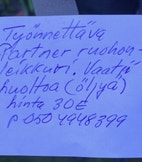 Työnnettävä
Partner ruohon-
leikkuri. Vaatii
huoltoa (öljyä)
hinta 30€
p 050 4948399